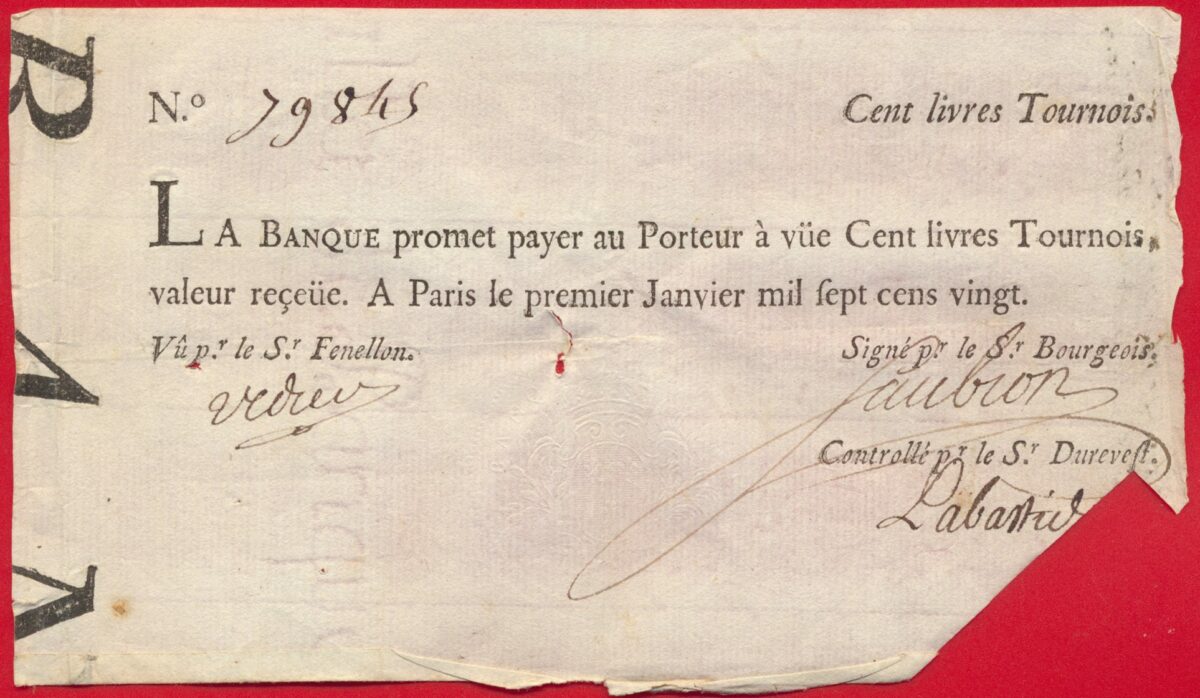 N.º 79845
Cent livres Tournois.
LA BANQUE promet payer au Porteur à vüe Cent livres Tournois,
valeur reçeüe. A Paris le premier Janvier mil ſept cens vingt.
Vû p.r le S.r Fenellon.
Signé p.r le S.r Bourgeois.
Controllé p.r le S.r Dureveſt.